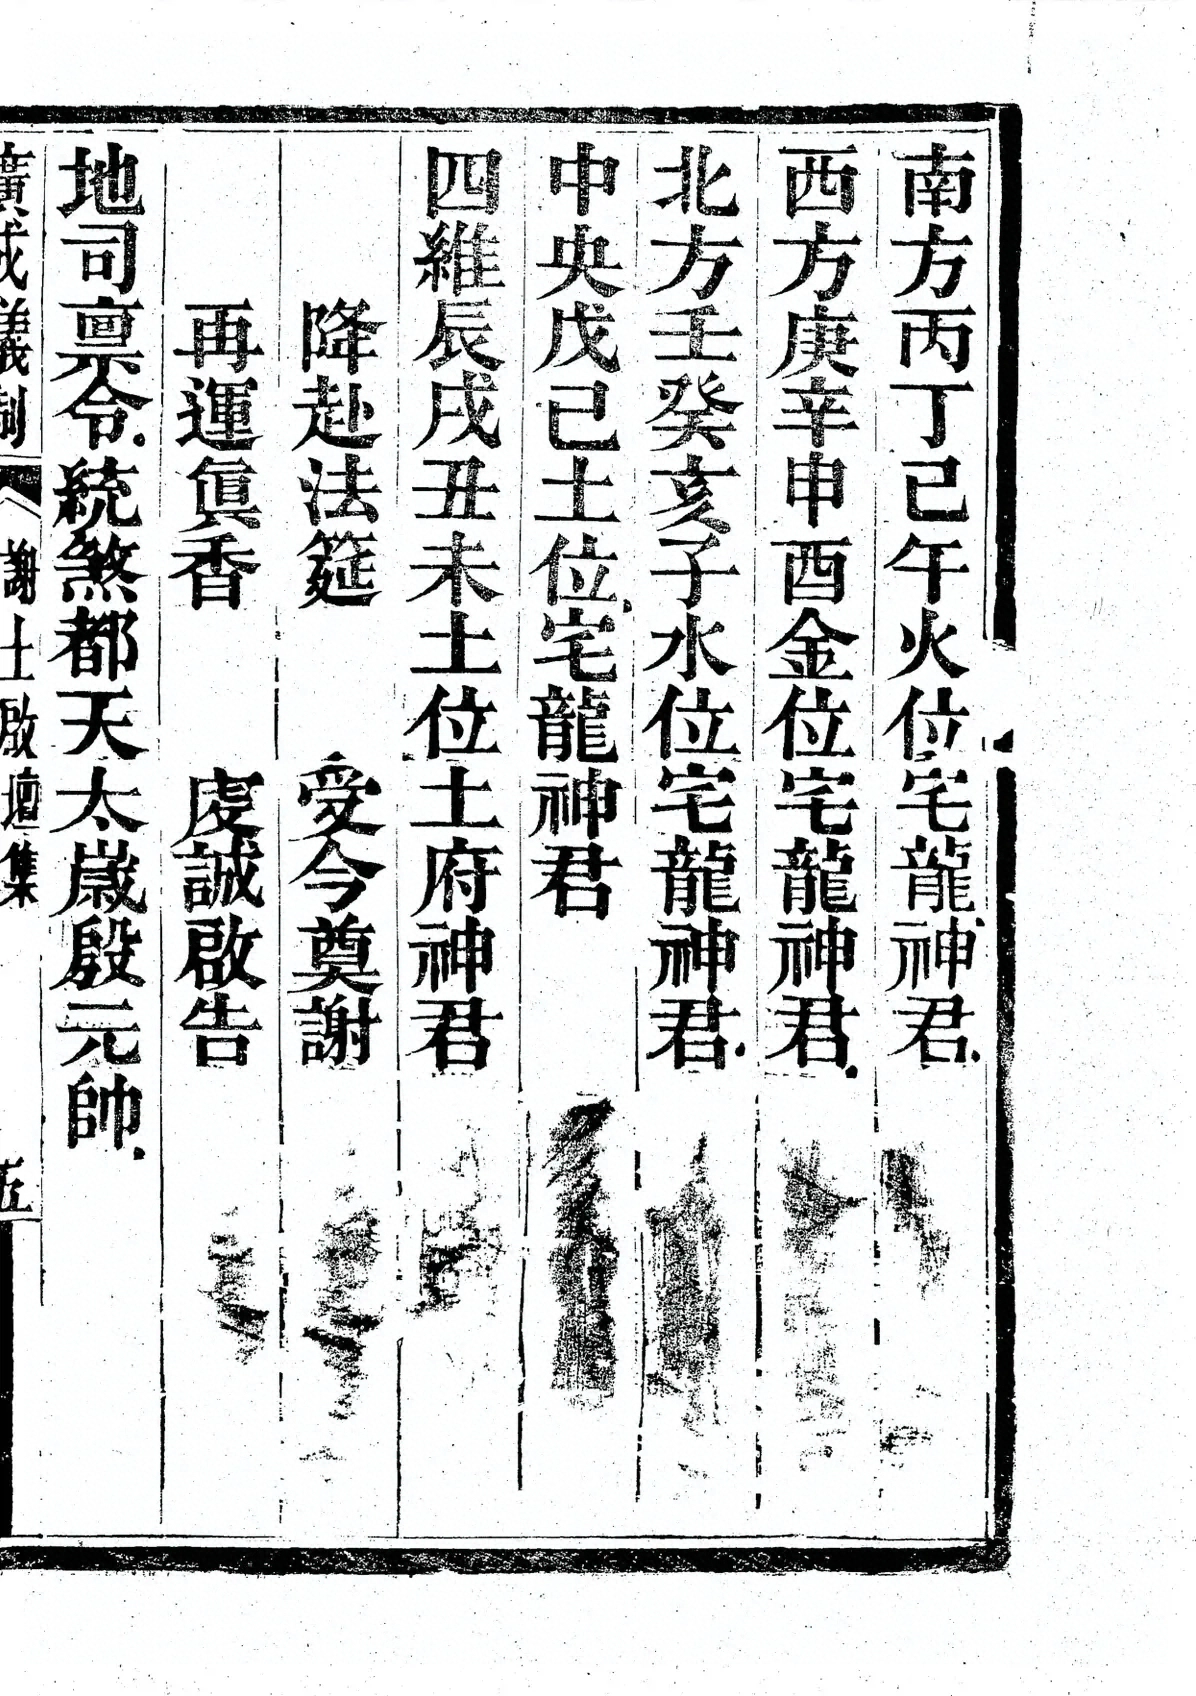 南方丙丁巳午火位宅龍神君.
西方庚辛申酉金位宅龍神君.
北方壬癸亥子水位宅龍神君.
中央戊己土位.宅龍神君
四維辰戌丑未土位土府神君
降赴法筵　受今奠謝
再運眞香　虔誠啟告
地司禀令.統煞都天太嵗殷元帥.
廣成儀制　謝土啟壇集　五